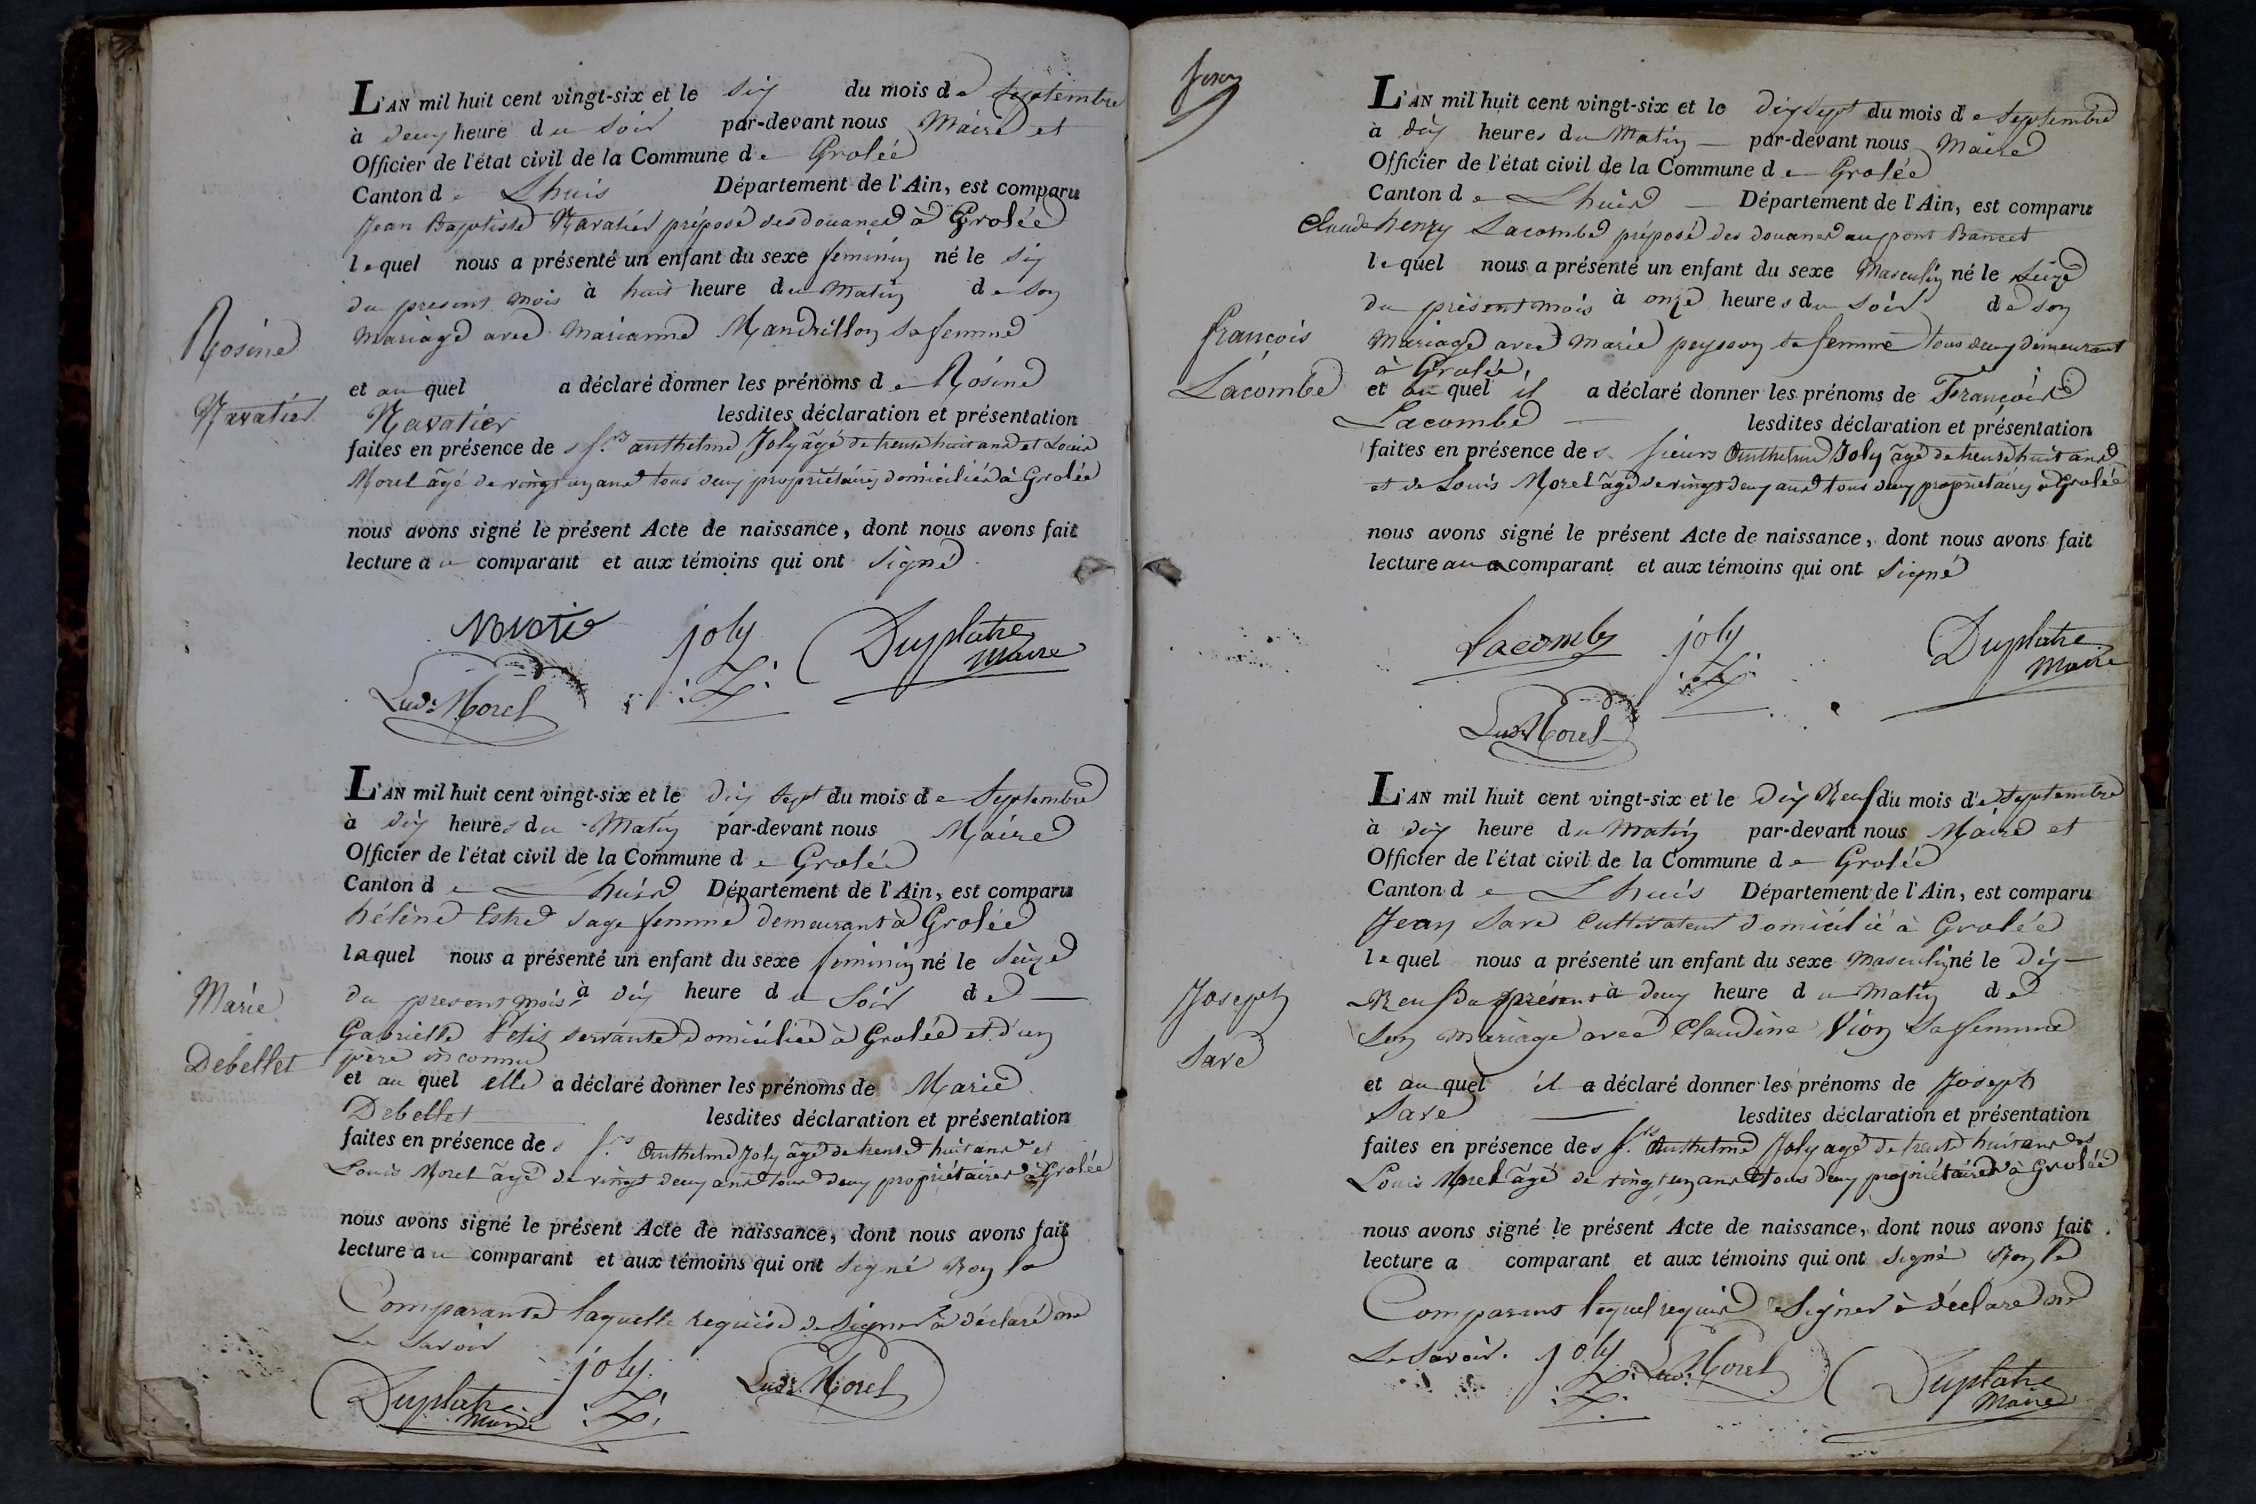 L'AN mil huit cent vingt-six et le six du mois de Septembre
à deux heure du soir par-devant nous Maire et
Officier de l'état civil de la Commune de Grolée
Canton de Lhuis Département de l'Ain, est comparu
Jean Baptiste Navatier préposé des douanes à Grolée
lequel nous a présenté un enfant du sexe feminin né le six
du present mois à huit heure du Matin de son
Mariage avec Marianne Mandrillon sa femme
Rosine
et au quel a déclaré donner les prénoms de Rosine
Navatier
Navatier lesdites déclaration et présentation
faites en présence des Srs anthelme Joly âgé de trente huit ans et Louis
Morel âgé de vingt un ans tous deux propriétaires domiciliés à Grolée
nous avons signé le présent Acte de naissance, dont nous avons fait
lecture au comparant et aux témoins qui ont Signé
joly
Duplatre
Maire
Lud: Morel
L'AN mil huit cent vingt-six et le dix sept du mois de Septembre
à dix heures du Matin par-devant nous Maire
Officier de l'état civil de la Commune de Grolée
Canton de Lhuis Département de l'Ain, est comparu
hélène Estre sage femme demeurant à Grolée
laquel nous a présenté un enfant du sexe feminin né le seize
du present mois à dix heure du Soir de
Marie
Gabrielle Petit servante domiciliée à Grolée et d'un
père inconnu
Debellet
et au quel elle a déclaré donner les prénoms de Marie
Debellet lesdites déclaration et présentation
faites en présence des Srs Anthelme Joly âgé de trente huit ans et
Louis Morel âgé de vingt deux ans tous deux propriétaires à Grolée
nous avons signé le présent Acte de naissance, dont nous avons fait
lecture au comparant et aux témoins qui ont signé Non la
Comparante laquelle requise de signer a déclaré ne
Le Savoir
joly
Lud: Morel
Duplatre
Maire
L'AN mil huit cent vingt-six et le dix Sept du mois de Septembre
à dix heures du Matin par-devant nous Maire
Officier de l'état civil de la Commune de Grolée
Canton de Lhuis Département de l'Ain, est comparu
Claude henry Lacombe préposé des douanes au pont Bancet
lequel nous a présenté un enfant du sexe Masculin né le Seize
du présent mois à onze heures du Soir de son
françois
Mariage avec Marie peysson sa femme tous deux demeurant
à Grolée,
Lacombe
et au quel il a déclaré donner les prénoms de François
Lacombe lesdites déclaration et présentation
faites en présence des sieurs Anthelme Joly âgé de trente huit ans
et de Louis Morel âgé de vingt deux ans tous deux propriétaires à Grolée
nous avons signé le présent Acte de naissance, dont nous avons fait
lecture au comparant et aux témoins qui ont Signé
Lacombe
joly
Duplatre
Maire
Lud: Morel
L'AN mil huit cent vingt-six et le Dix Neuf du mois de Septembre
à dix heure du Matin par-devant nous Maire et
Officier de l'état civil de la Commune de Grolée
Canton de Lhuis Département de l'Ain, est comparu
Jean Save Cultivateur domicilié à Grolée
lequel nous a présenté un enfant du sexe Masculin né le Dix
Joseph
Neuf du présent à deux heure du Matin de
Son Mariage avec Claudine Vion Sa femme
Save
et au quel il a déclaré donner les prénoms de Joseph
Save lesdites déclaration et présentation
faites en présence des Srs Anthelme Joly agé de trente huit ans et
Louis Morel âgé de vingt un ans tous deux propriétaires à Grolée
nous avons signé le présent Acte de naissance, dont nous avons fait
lecture a comparant et aux témoins qui ont signé Non le
Comparant lequel requis de Signer à déclaré ne
Le Savoir.
joly
Lud: Morel
Duplatre
Maire